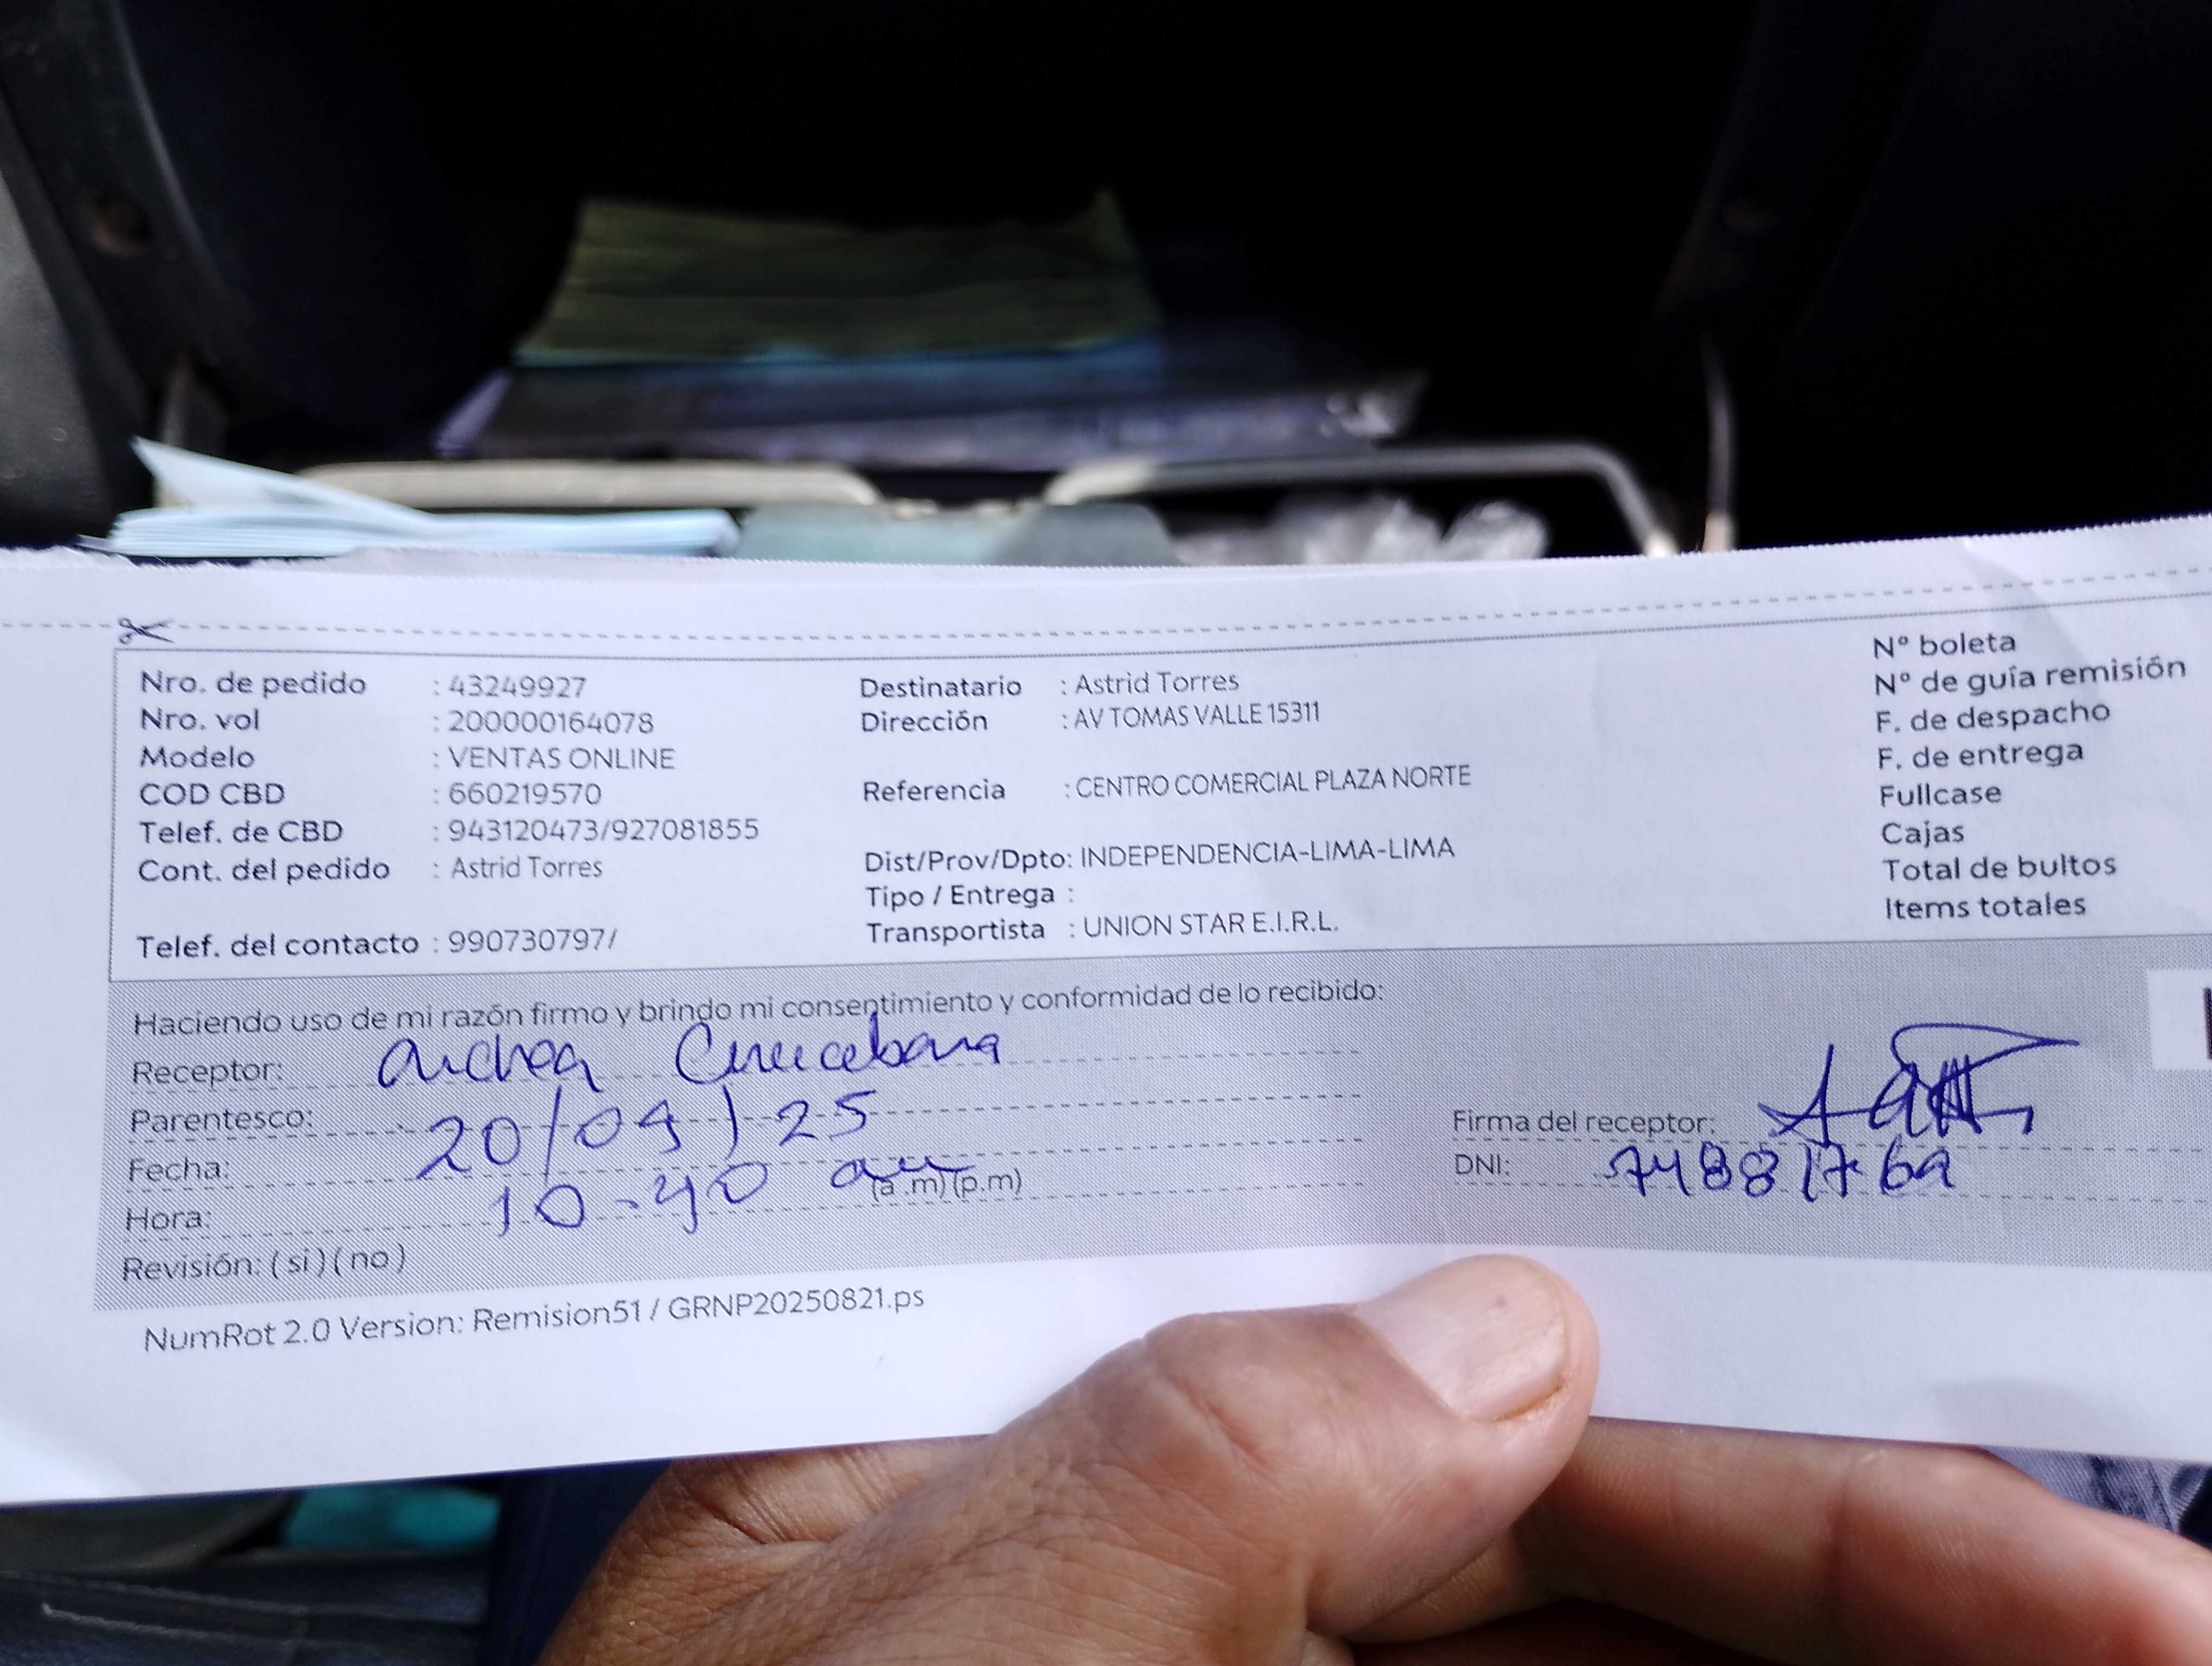 Nro. de pedido : 43249927
Nro. vol : 200000164078
Modelo : VENTAS ONLINE
COD CBD : 660219570
Telef. de CBD : 943120473/927081855
Cont. del pedido : Astrid Torres
Telef. del contacto : 990730797/
Destinatario : Astrid Torres
Dirección : AV TOMAS VALLE 15311
Referencia : CENTRO COMERCIAL PLAZA NORTE
Dist/Prov/Dpto: INDEPENDENCIA-LIMA-LIMA
Tipo / Entrega :
Transportista : UNION STAR E.I.R.L.
N° boleta
N° de guía remisión
F. de despacho
F. de entrega
Fullcase
Cajas
Total de bultos
Items totales
Haciendo uso de mi razón firmo y brindo mi consentimiento y conformidad de lo recibido:
Receptor:
Parentesco:
Fecha: 20/09/25
Hora: 10-40 am (a.m) (p.m)
Revisión: ( si ) ( no )
Firma del receptor:
DNI:
NumRot 2.0 Version: Remision51 / GRNP20250821.ps